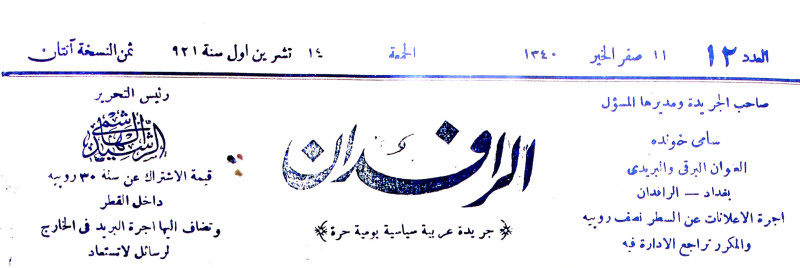 العدد ١٢ ١١ صفر الخير ١٣٤٠ الجمعة ١٤ تشرين اول سنة ٩٢١ ثمن النسخة آنتان
صاحب الجريدة ومديرها المسؤل
سامي خونده
العنوان البرقي والبريدي
بغداد — الرافدان
اجرة الاعلانات عن السطر نصف روبيه
والمكرر تراجع الادارة فيه
الرافدان
﴿ جريدة عربية سياسية يومية حرة ﴾
رئيس التحرير
قيمة الاشتراك عن سنة ٣٠ روبيه
داخل القطر
وتضاف اليها اجرة البريد في الخارج
لرسائل لاتستعاد